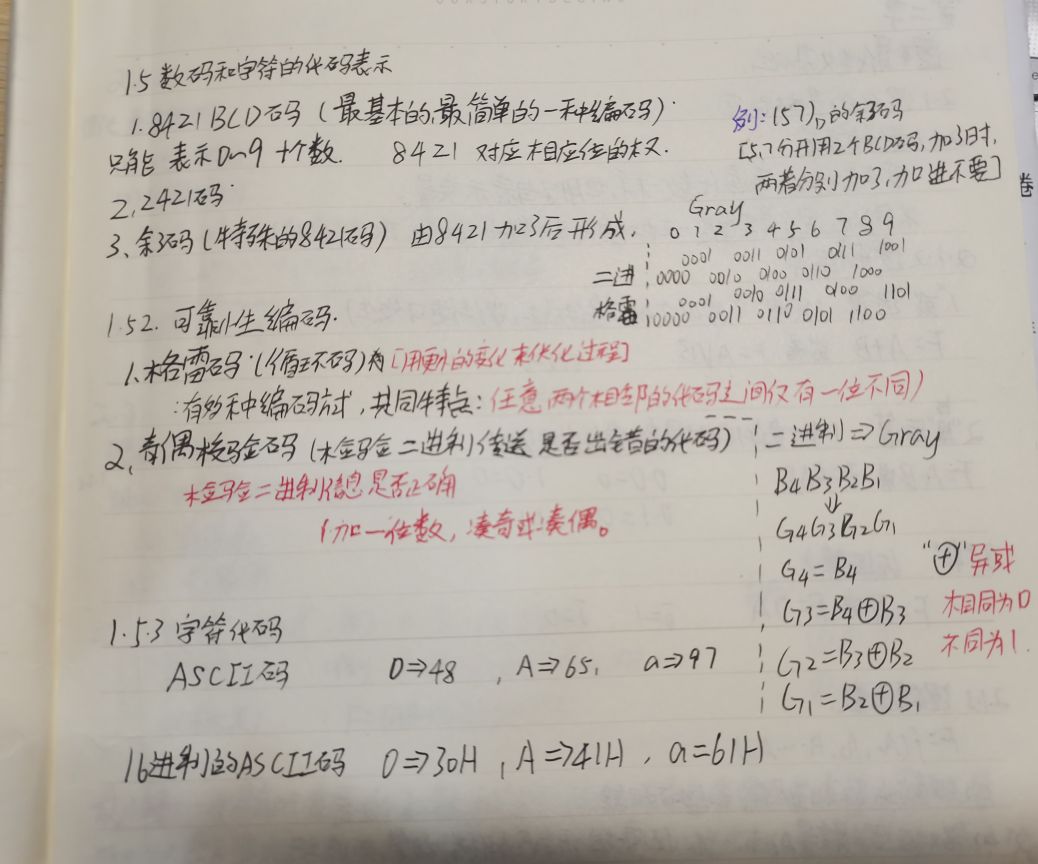 1.5 数码和字符的代码表示
1. 8421BCD码（最基本的,最简单的一种编码）.
只能 表示0~9 十个数. 8421 对应相应位的权.
2, 2421码.
3、余3码(特殊的8421码) 由8421加3后形成.
例: (57)D的余3码
[5,7分开用2个BCD码,加3时,
两者分别加3,加口进不要]
Gray
0 1 2 3 4 5 6 7 8 9
0001 0011 0101 0111 1001
二进 0000 0010 0100 0110 1000
0001 0010 0111 0100 1101
格雷 0000 0011 0110 0101 1100
1.52. 可靠性编码.
1.格雷码.(循环码)有[用更小的变化来优化过程]
:有多种编码方式, 共同特点: 任意两个相邻的代码之间仅有一位不同)
2, 奇偶校验码 (检验二进制传送是否出错的代码)
检验二进制信息是否正确
加一位数, 凑奇或凑偶。
二进制⇒Gray
B4B3B2B1
⇓
G4G3G2G1
G4=B4
G3=B4⊕B3
G2=B3⊕B2
G1=B2⊕B1
"⊕"异或
相同为0
不同为1.
1.5.3 字符代码
ASCII码 0⇒48 , A⇒65, a⇒97
16进制的ASCII码 0⇒30H , A⇒41H , a=61H